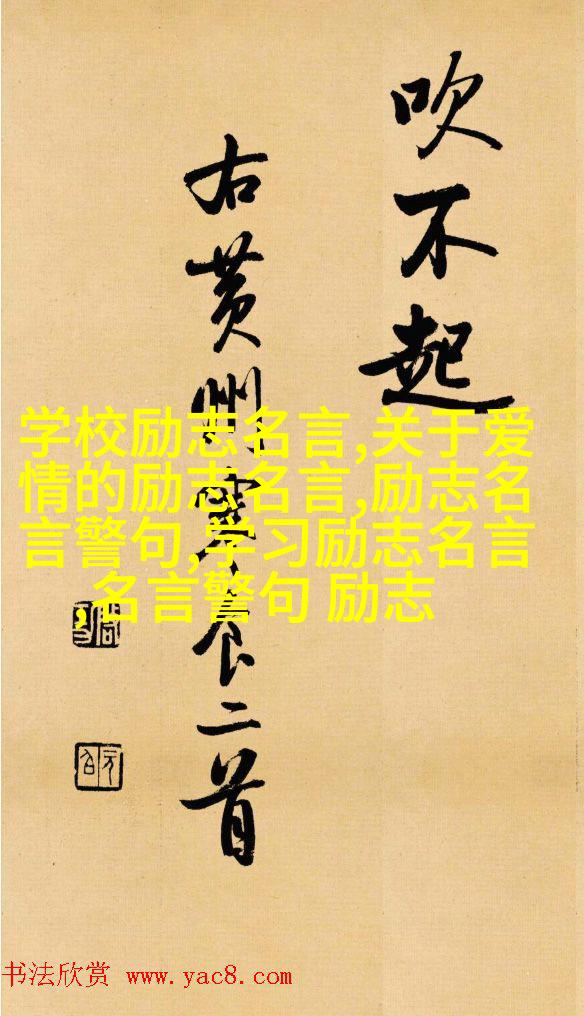 吹不起
右黄州寒食二首
学校励志名言,关于爱
情的励志名言,励志名
言警句,学习励志名言
名言警句 励志
书法欣赏 www.yac8.com